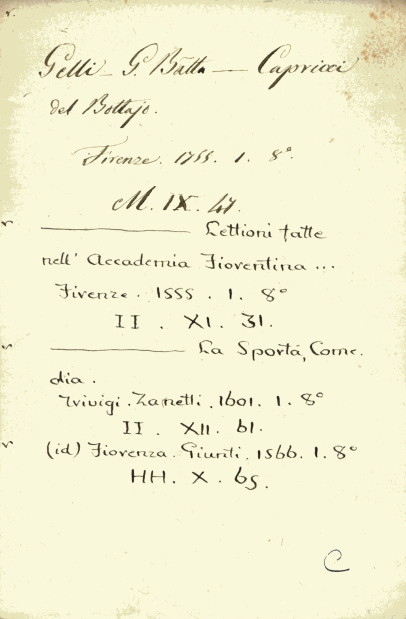 Gelli - G. Batta — Capricci
del Bottajo.
Firenze. 1755. 1. 8°.
M. IX. 47.
——— Lettioni fatte
nell' Accademia Fiorentina ...
Firenze. 1555. 1. 8°
II. XI. 31.
——— La Sporta, Come.
dia.
Trivigi. Zanetti. 1601. 1. 8°
II. XII. 61.
(id) Fiorenza. Giunti. 1566. 1. 8°
HH. X. 65.
C